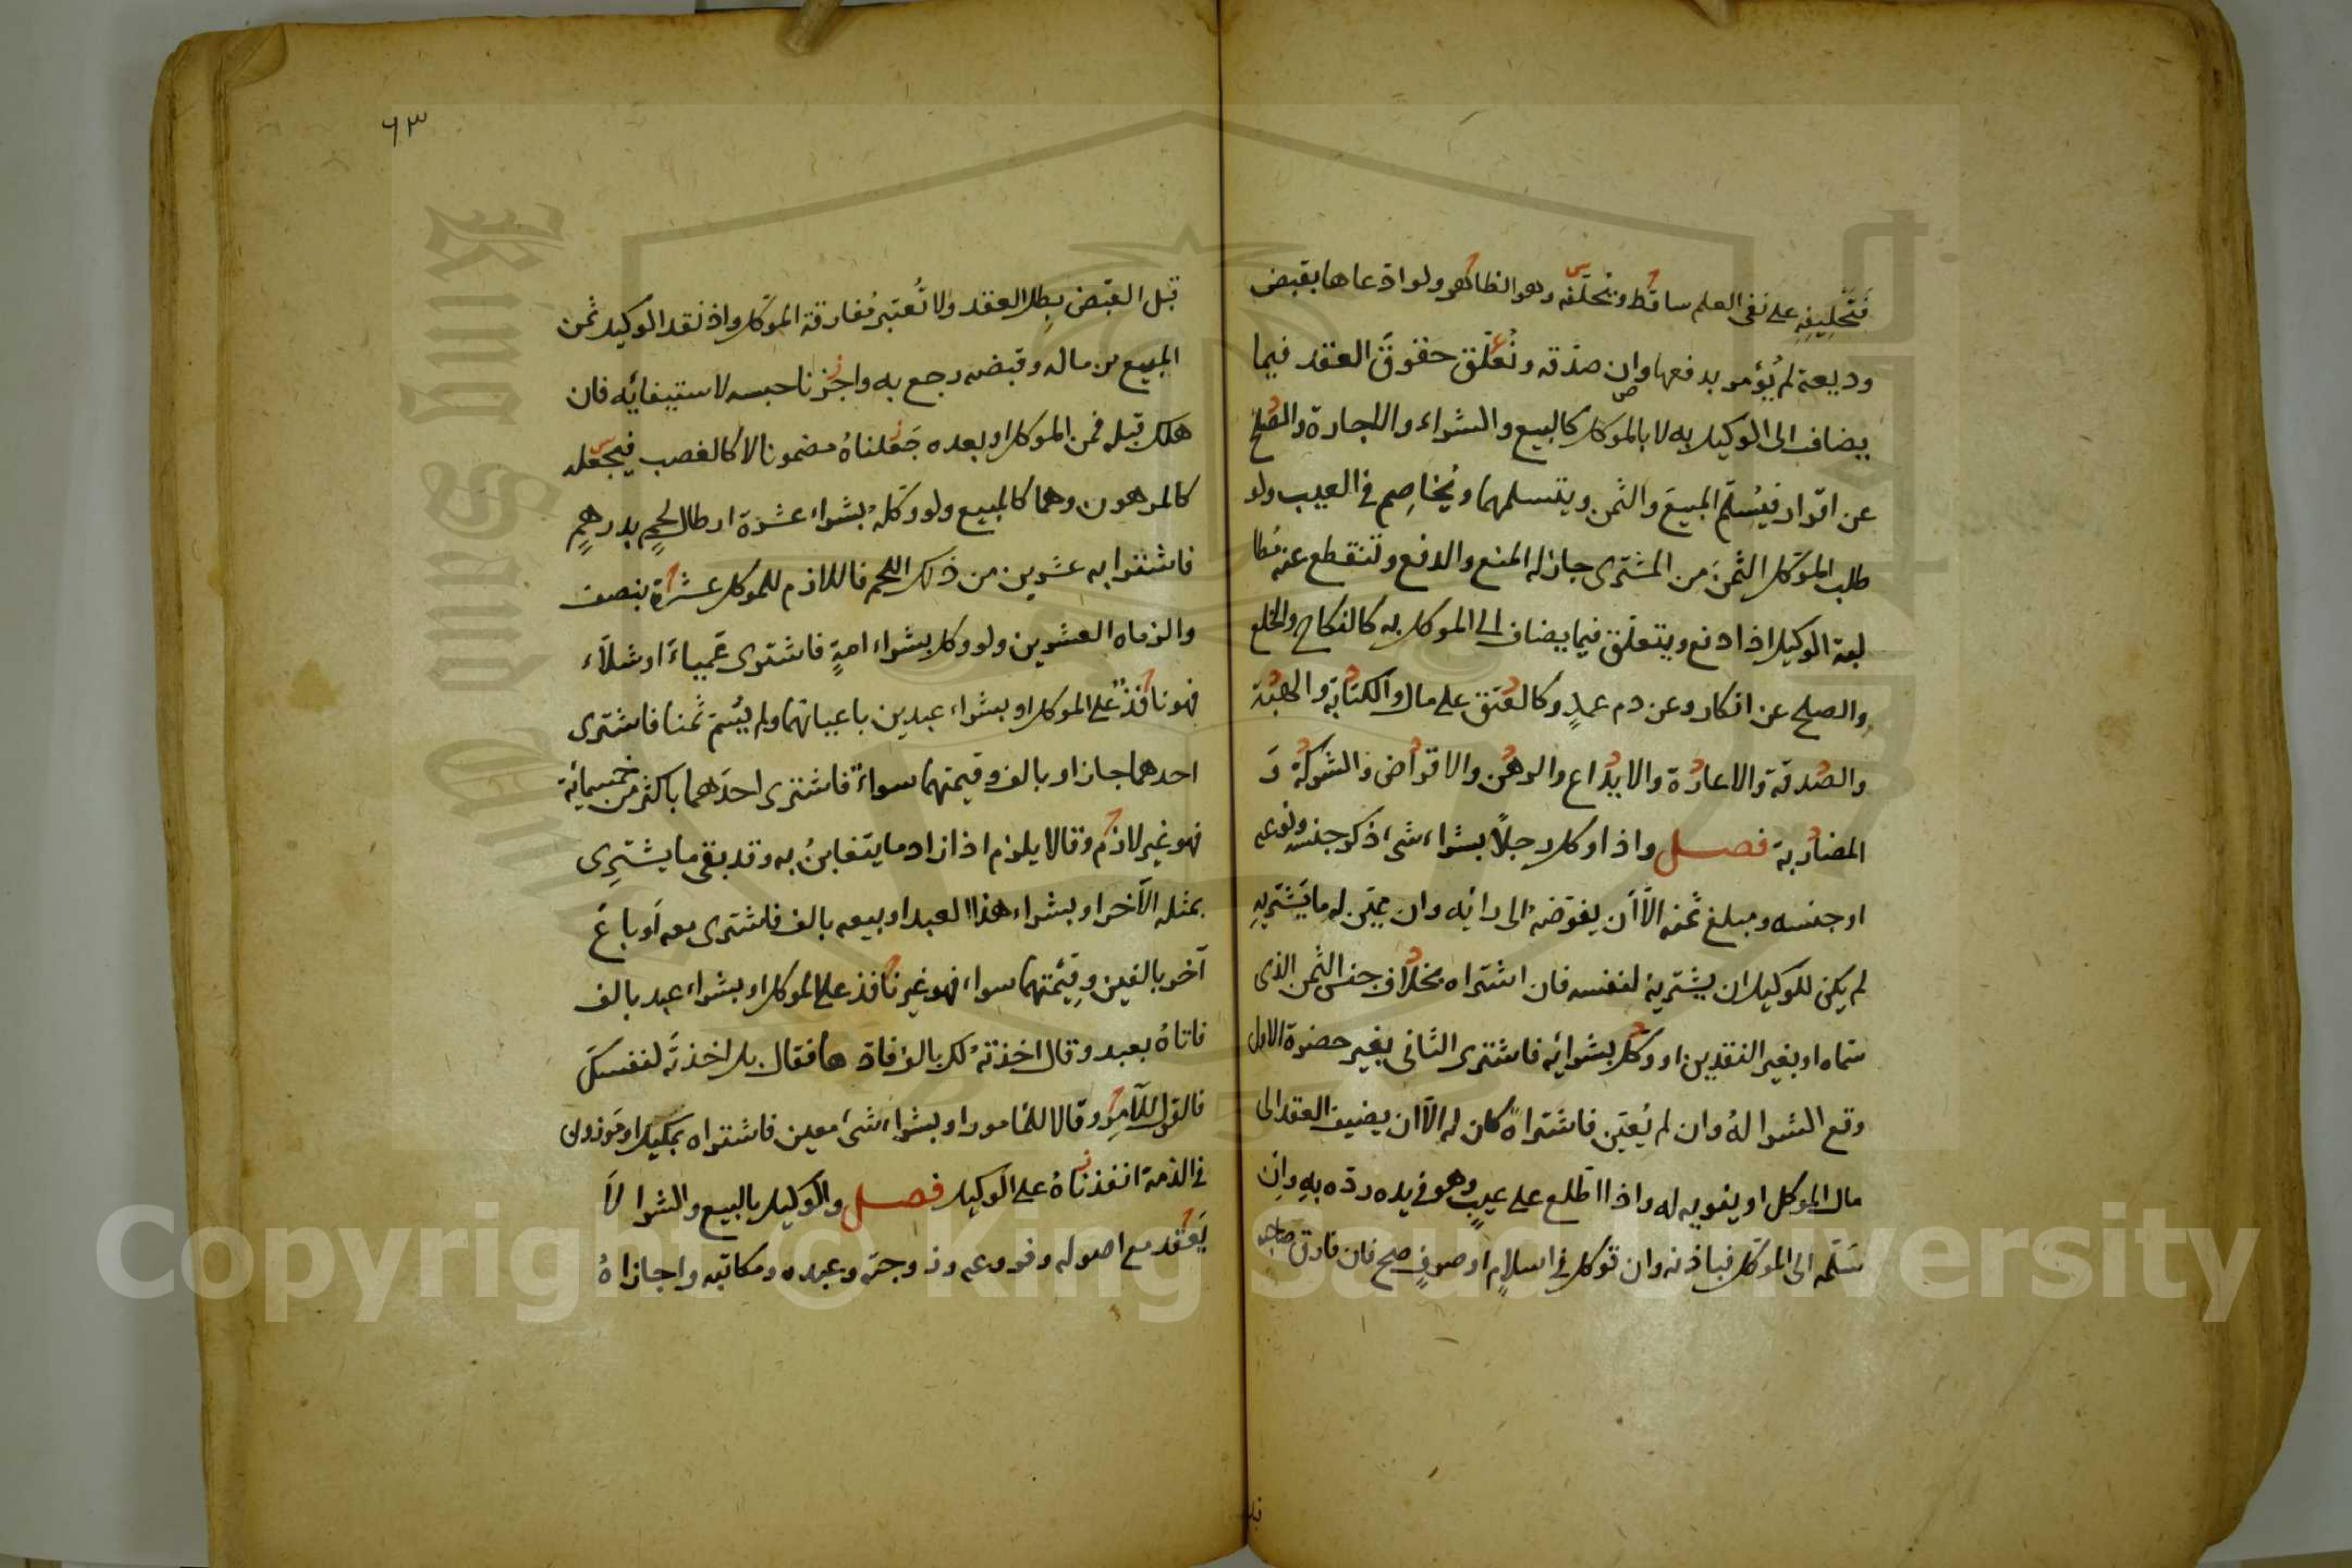 فتحليفه على نفى العلم ساقط ويحلفه وهو الظاهر ولو ادعاها بقبض
وديعة لم يُؤمر بدفعها وان صدّقه وتُعلّق حقوقَ العقد فيما
يضاف الى الوكيل به لا بالموكل كالبيع والشراء والاجارة والصلح
عن اقرار فيُسلّم المبيعَ والثمن ويتسلمهما ويُخاصِم فى العيب ولو
طلب الموكل الثمنَ من المشترى جاز له المنع والدفع وتنقطع عنه مُطا
لبة الوكيل اذا دفع ويتعلق فيما يضاف الى الموكل به كالنكاح والخلع
والصلح عن انكار وعن دم عمدٍ وكالعتق على مال والكتابة والهبة
والصدقة والاعارة والايداع والرهن والاقراض والشركة وَ
المضاربة فصل واذا وكل رجلًا بشراء شى ذكر جنسه ونوعه
او جنسه ومبلغ ثمنه الّا أن يفوّضه الى رائه وان عيّن له ما يَشتريهِ
لم يكن للوكيل ان يشتريه لنفسه فان اشتراه بخلاف جنس الثمن الذى
سمّاه او بغير النقدين او وكل بشرائه فاشترى الثانى بغير حضرة الاول
وقع الشرا لهُ وان لم يُعيّن فاشتراهُ كان له الّا ان يضيف العقد الى
مال الموكل او ينويه له واذا اطّلع على عيبٍ وهو فى يده ردّه به وان
سَلّمه الى الموكل فباذنه وان توكل فى اسلامٍ او صرفٍ صح فان فارق صاحبه
٦٣
قبل القبض بطل العقد ولا تُعتبرُ مُفارقة الموكّل واذا نقد الوكيل ثمن
المبيع من ماله وقبضه رجع به واجزنا حبسه لاستيفائه فان
هلك قبله فمن الموكل او بعده جَعَلناهُ مضمونا لا كالغصب فيجعله
كالمرهون وهما كالمبيع ولو وكّلهُ بشراء عشرة ارطال لحمٍ بدرهمٍ
فاشترا به عشرين من ذلك اللحم فاللازم للموكل عشرة بنصف
والزماه العشرين ولو وكل بشراء امةٍ فاشترى عَمياءَ او شلآء
فهو نافذٌ على الموكل او بشراء عبدين باعيانهما ولم يُسمّ ثمنا فاشترى
احدهما جاز او بالف وقيمتهما سواءٌ فاشترى احدَهما باكثر من خمسمائة
فهو غير لازم وقالا يلزم اذا زاد ما يتغابنُ به وقد بقى ما يشترِى
بمثله الآخر او بشراء هذا العبد او بيعه بالف فاشترى معه أو باعَ
آخر بالفين وقِيمَتهما سواء فهو غير نافذ على الموكل او بشراء عبد بالف
فاتاهُ بعبد وقال اخذتهُ لك بالف فاة ها فقال بل اخذتَه لنفسكَ
فالقول للآمِر وقالا للمامور او بشراء شىء معين فاشتراه بمكيل او موزون
فى الذمة انفذناهُ على الوكيل فصل والوكيل بالبيع والشرا لاَ
يَعقد مع اصوله وفروعه وزوجته وعبده ومكاتبه واجازاهُ